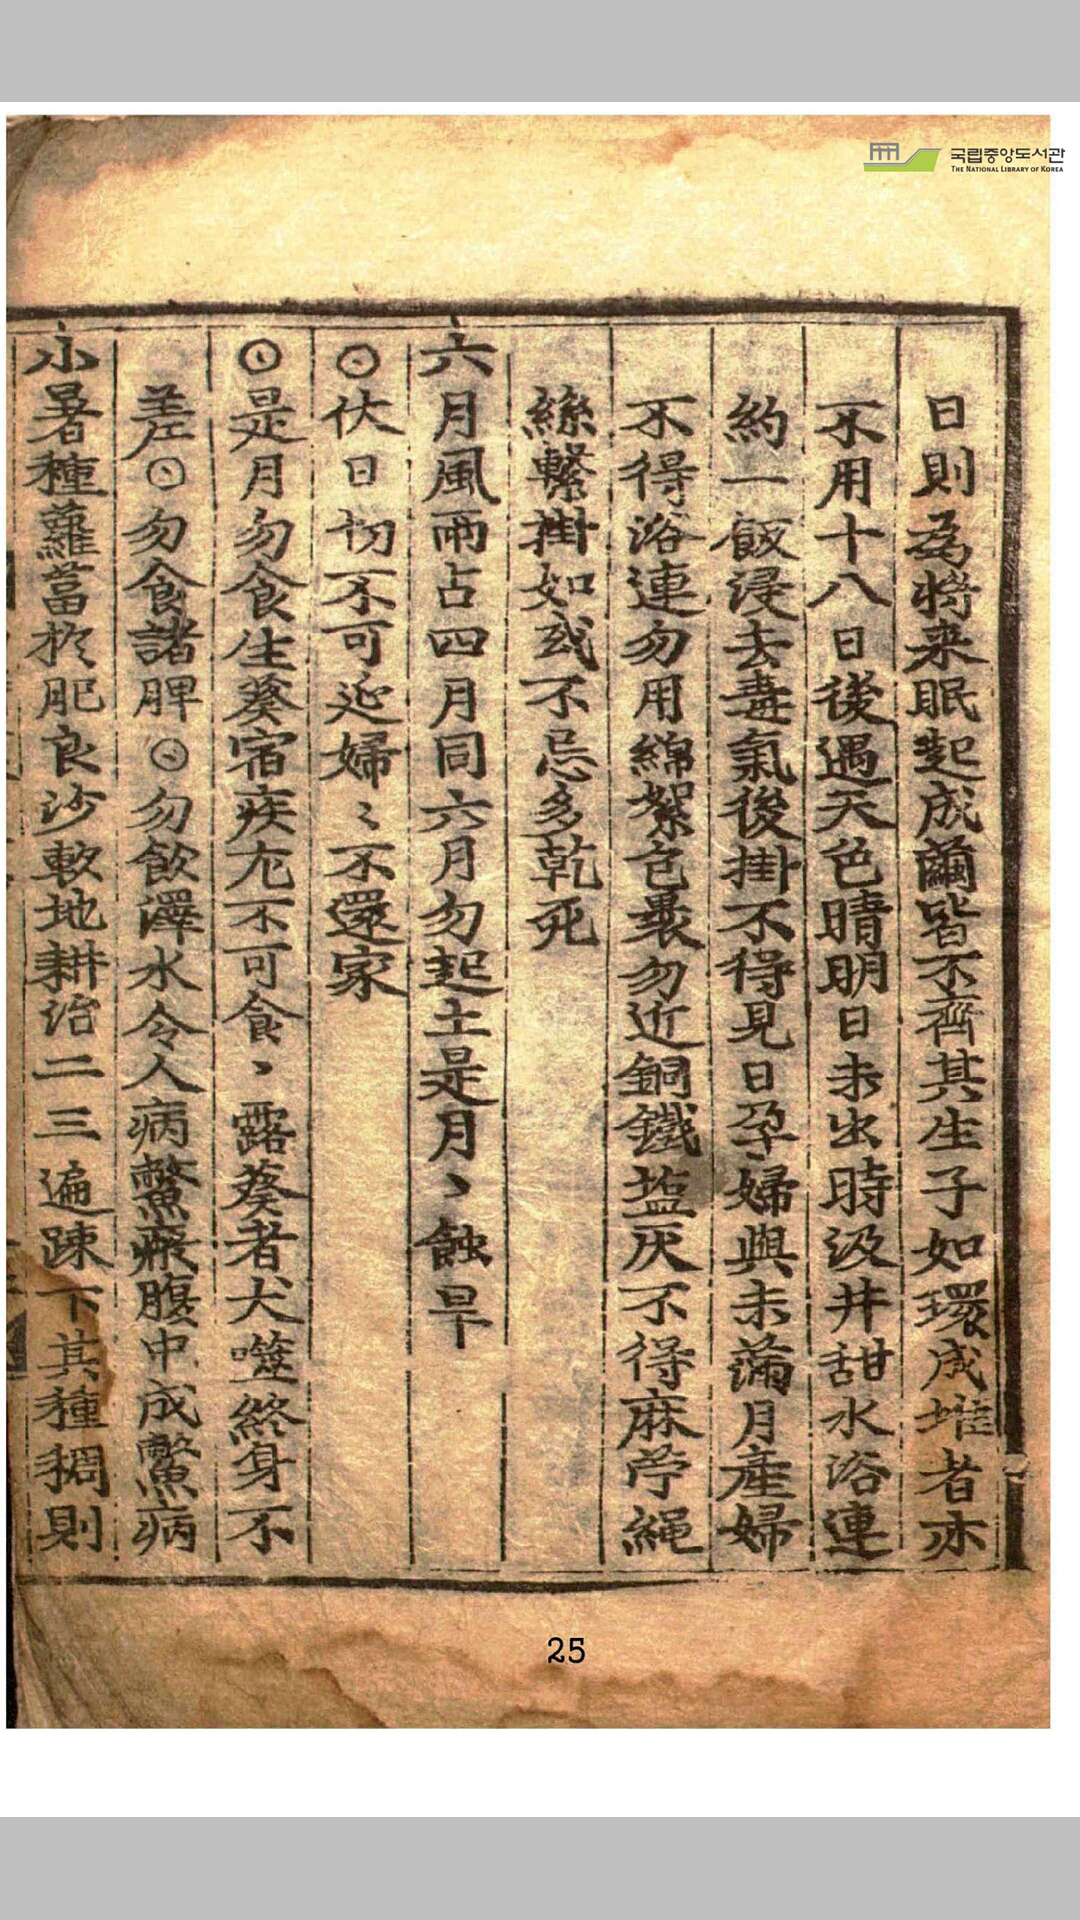 국립중앙도서관
THE NATIONAL LIBRARY OF KOREA
日則為將来眠起成繭皆不齊其生子如環成堆者亦
不用十八日後遇天色晴明日未出時汲井甜水浴連
約一飯浸去毒氣後掛不得見日孕婦與未滿月産婦
不得浴連勿用綿絮包裹勿近銅鐵塩灰不得麻苧繩
絲繫掛如或不忌多乾死
六月風雨占四月同六月勿起土是月〻蝕旱
⊙伏日切不可迎婦〻不還家
⊙是月勿食生葵宿疾尤不可食〻露葵者犬噬終身不
差⊙勿食諸脾⊙勿飮澤水令人病鱉瘕腹中成鱉病
小暑種蘿葍於肥良沙軟地耕治二三遍踈下其種稠則
25